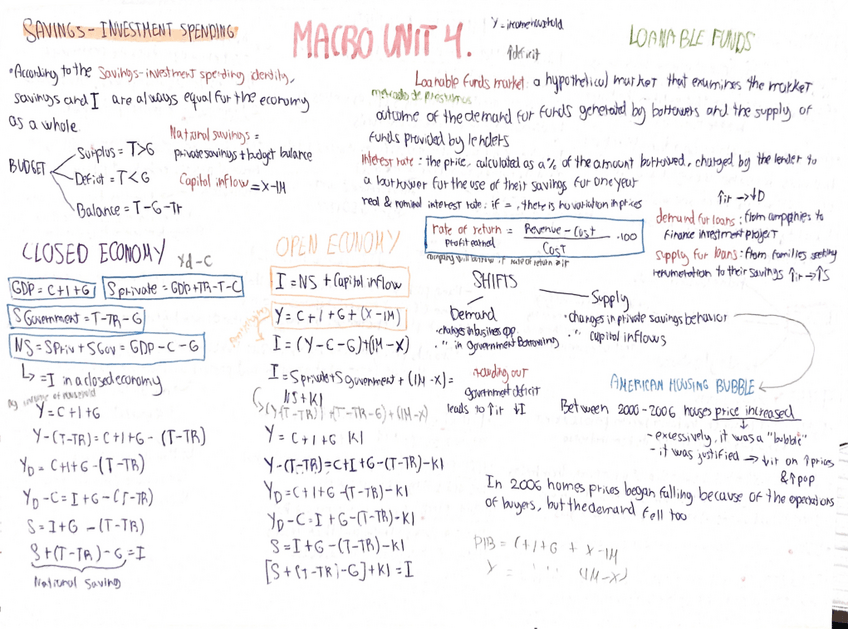 SAVINGS - INVESTMENT SPENDING
•According to the Savings-investment spending identity,
savings and I are always equal for the economy
as a whole
BUDGET
Surplus = T>G
Deficit = T<G
Balance = T-G-Tr
National savings =
private savings + budget balance
Capital inflow = X-IM
MACRO UNIT 4.
↑deficit
LOANABLE FUNDS
Loanable funds market: a hypothetical market that examines the market
outcome of the demand for funds generated by borrowers and the supply of
funds provided by lenders
Interest rate: the price, calculated as a % of the amount borrowed, charged by the lender to
a borrower for the use of their savings for one year
real & nominal interest rate: if =, there is no variation in prices
rate of return = Revenue - Cost / Cost .100
profit earned
↑ir →↓D
demand for loans: from companies to
finance investment project
supply for loans: from families seeking
renumeration to their savings ↑ir→↑S
SHIFTS
Demand
•changes in business opp
• " in government Borrowing
Supply
•changes in private savings behavior
• " capital inflows
crowding out
government deficit
leads to ↑ir ↓I
AMERICAN HOUSING BUBBLE
Between 2000-2006 houses price increased
- excessively, it was a "bubble"
- it was justified → ↓ir on ↑prices
& ↑pop
In 2006 homes prices began falling because of the expectations
of buyers, but the demand fell too
PIB = C+I+G + X-IM
Y = (IM-X)
CLOSED ECONOMY
Yd-C
GDP = C+I+G
Sprivate = GDP+TR-T-C
SGovernment = T-TR-G
NS = SPriv + SGov = GDP-C-G
↳ = I in a closed economy
Y = C+I+G
Y-(T-TR) = C+I+G-(T-TR)
YD = C+I+G-(T-TR)
YD-C = I+G-(T-TR)
S = I+G-(T-TR)
S+(T-TR)-G = I
National Saving
OPEN ECONOMY
I = NS + Capital inflow
Y = C+I+G+(X-IM)
I = (Y-C-G)+(IM-X)
I = Sprivate + Sgovernment + (IM-X) =
NS+KI
Y = C+I+G KI
Y-(T-TR) = C+I+G-(T-TR)-KI
YD = C+I+G-(T-TR)-KI
YD-C = I+G-(T-TR)-KI
S = I+G-(T-TR)-KI
[S+(T-TR)-G]+KI = I